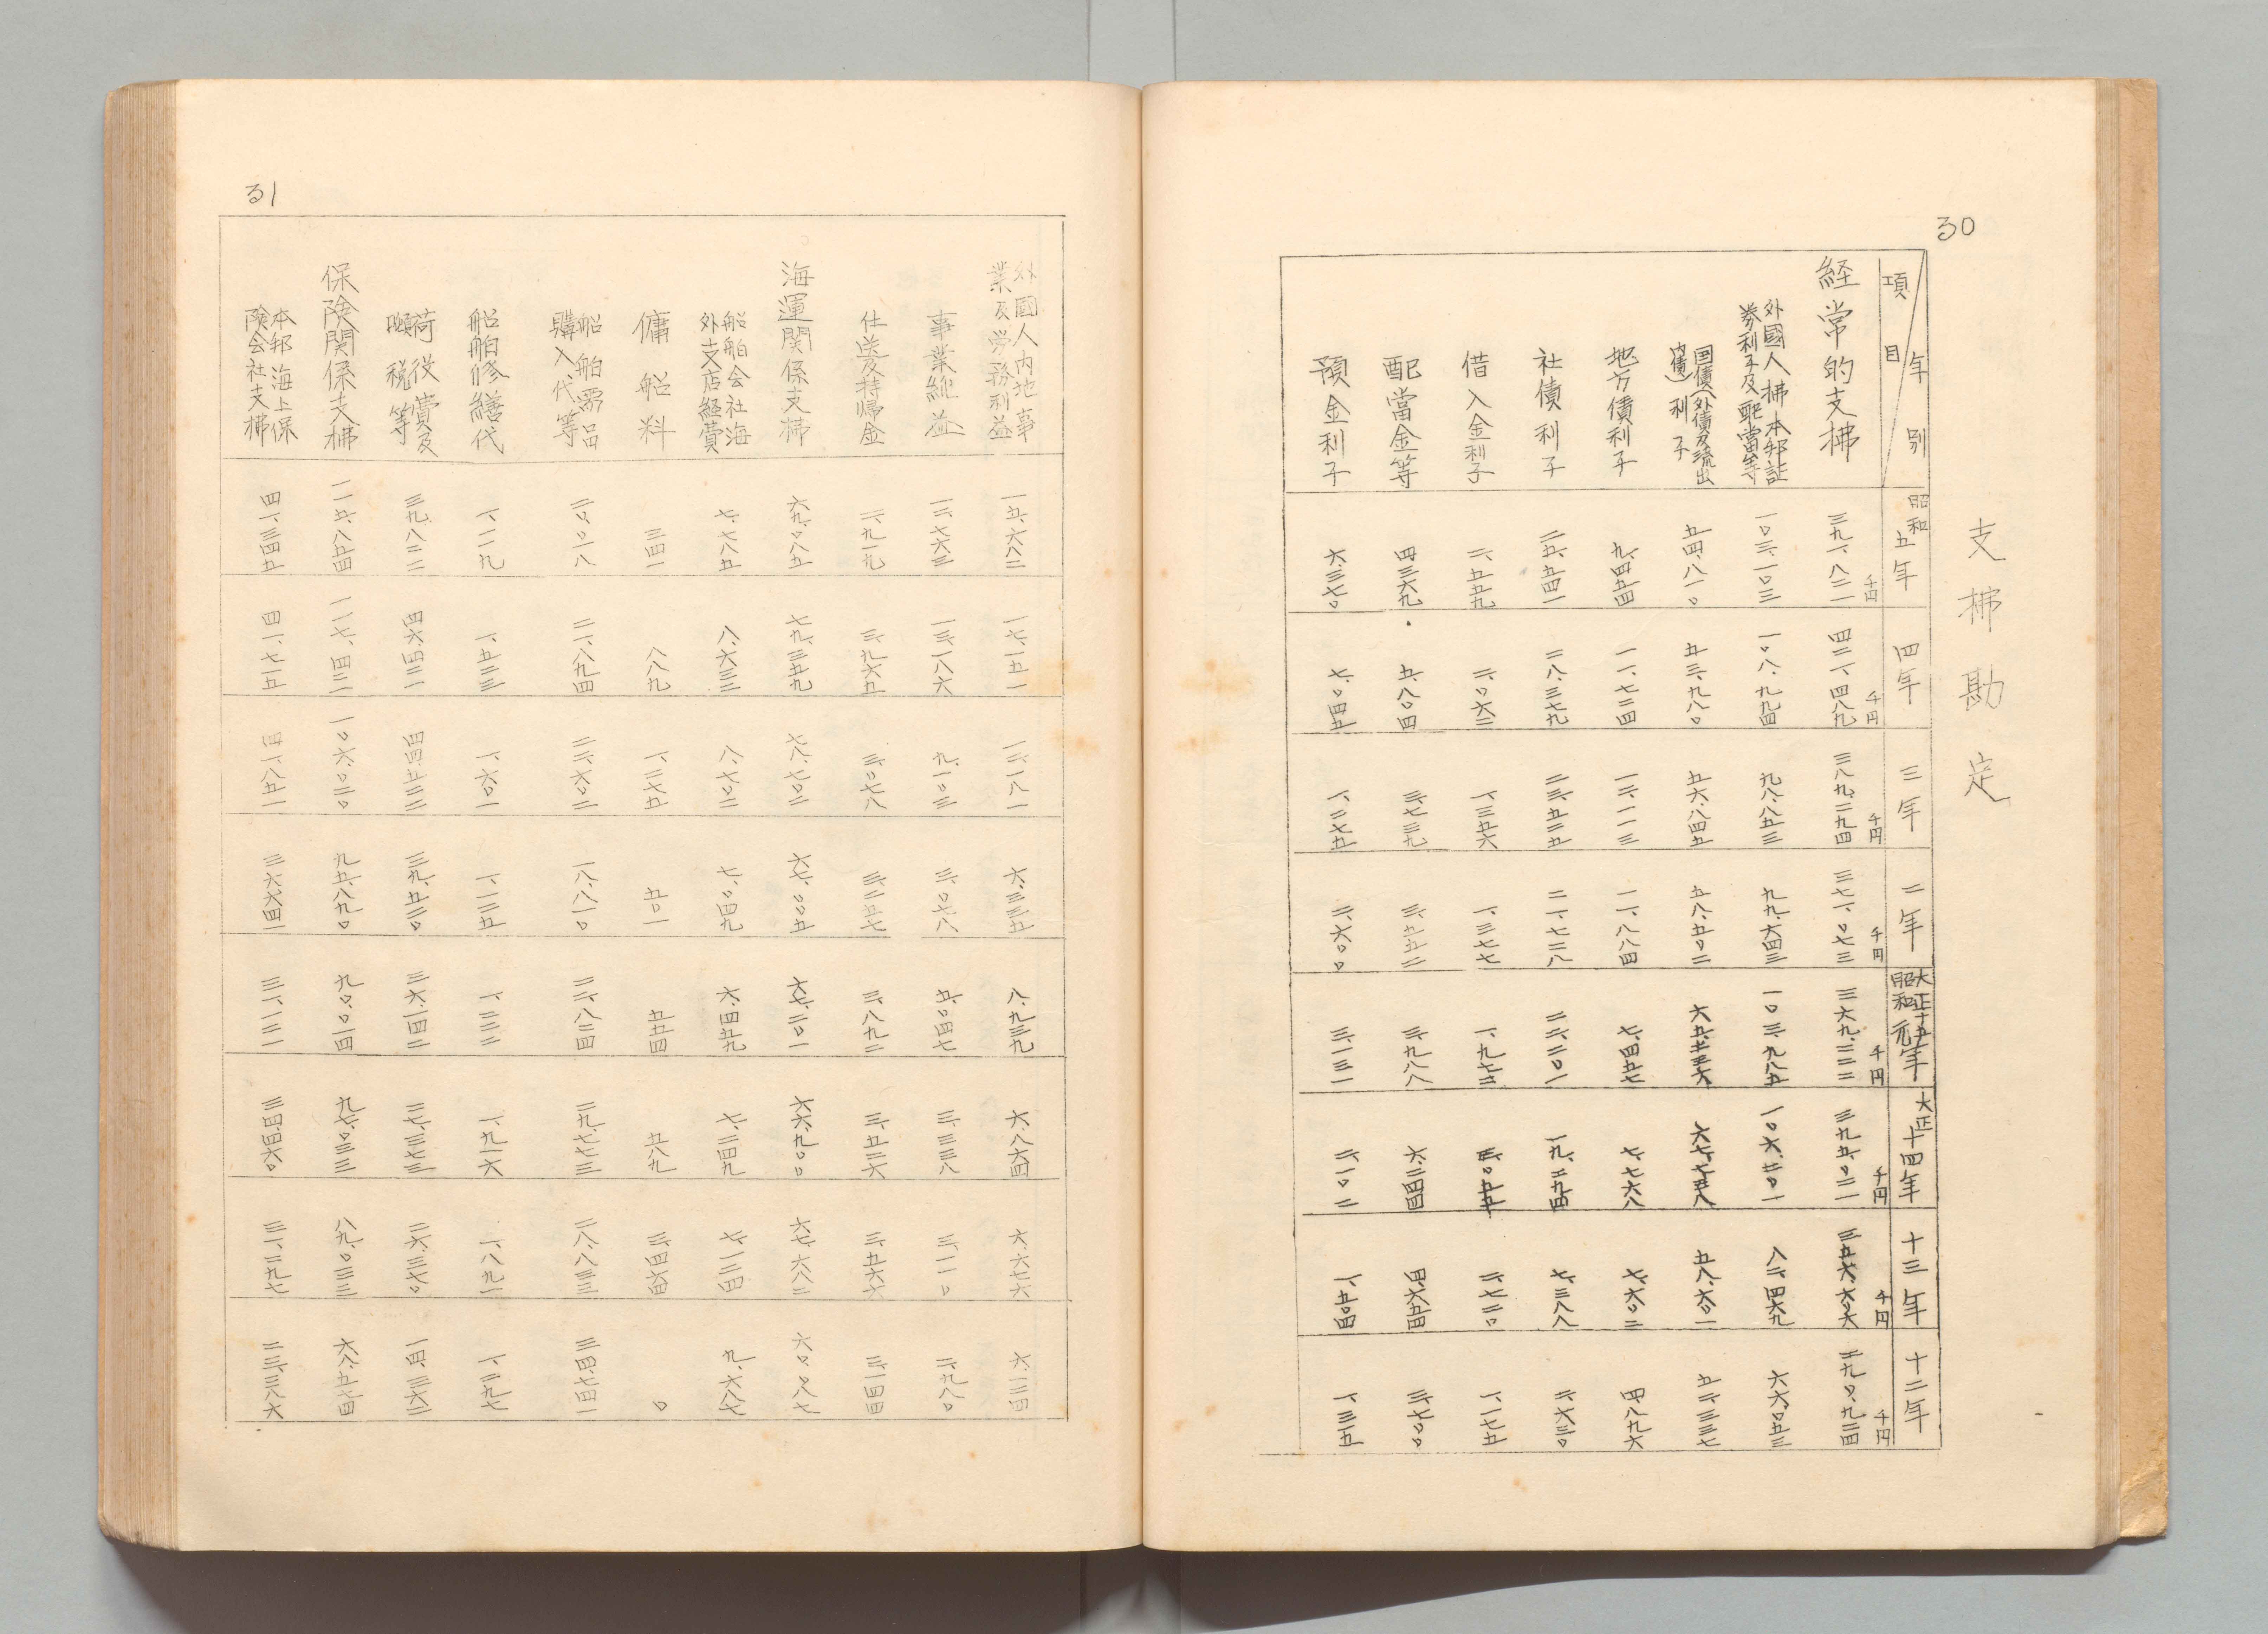 30
支拂勘定
項目 年別 昭和五年 四年 三年 二年 大正十五年昭和元年 大正十四年 十三年 十二年
千円 千円 千円 千円 千円 千円 千円 千円
経常的支拂 三九一、八三一 四二一、四八九 三八九、二九四 三七一、〇七三 三六九、二二二 三九五、〇二一 三五六、六〇六 二九〇、九二四
外國人拂本邦証
券利子及配當等 一〇三、一〇三 一〇八、九九四 九八、八五三 九九、六四三 一〇三、九八五 一〇六、二〇一 八二、四六九 六六、〇五三
国債(外債及流出
内債)利子 五四、八一〇 五三、九八〇 五六、八四五 五八、五〇二 六五、二三六 六七、七三八 五八、六〇一 五二、三三七
地方債利子 九、四五四 一一、七二四 一二、一一三 一一、八八四 七、四五七 七、七六八 七、六〇二 四、八九六
社債利子 二五、五四一 二八、三七九 二三、五二五 二一、七二八 二二、二〇一 一九、二九四 七、三八八 二、六三〇
借入金利子 二、五五九 二、〇六二 一、三五六 一、三七七 一、九七二 三、〇五五 二、七二〇 一、一七五
配當金等 四、三六九 五、八〇四 三、七三九 三、五五二 三、九八八 六、二四四 四、六五四 三、七〇〇
預金利子 六、三七〇 七、〇四五 一、二七五 二、六〇〇 三、一三一 二、一〇二 一、五〇四 一、三一五
31
外國人内地事
業及労務利益 一五、六八二 一七、一五一 一二、一八一 六、三三五 八、九三九 六、八六四 六、六七六 六、一二四
事業純益 一二、七六三 一三、一八六 九、一〇三 三、〇七八 五、〇四七 三、三三八 三、一一〇 二、九八〇
仕送及持帰金 二、九一九 三、九六五 三、〇七八 三、二五七 三、八九二 三、五二六 三、五六六 三、一四四
海運関係支拂 六九、〇八五 七九、三五九 七八、七〇二 六七、〇〇五 六七、二〇一 六六、九〇〇 六七、六八二 六〇、〇八七
船舶会社海
外支店経費 七、七八五 八、六二二 八、七〇二 七、〇四九 六、四五九 七、二四九 七、一二四 九、六八七
傭船料 三四一 八八九 一、二七五 五〇一 五五四 五八九 三、四六四 〇
船舶需品
購入代等 二〇、〇一八 二一、八九四 二二、六〇二 一八、八一〇 二二、八二四 二九、七七三 二八、八三三 三四、七四一
船舶修繕代 一、一一九 一、五三三 一、六〇一 一、一二五 一、二二二 一、九一六 一、八九一 一、二九七
荷役賃及
噸税等 三九、八二二 四六、四二一 四四、五二二 三九、五二〇 三六、一四二 二七、三七三 二六、三七〇 一四、三六二
保険関係支拂 一一五、八五四 一一七、四三二 一〇六、〇二〇 九五、八九〇 九〇、〇一四 九七、〇三三 八九、〇三三 六八、五七四
本邦海上保
険会社支拂 四一、三四五 四一、七一五 四一、八五一 三六、六四一 三一、一二一 三四、四六〇 三一、二九七 二三、三八六